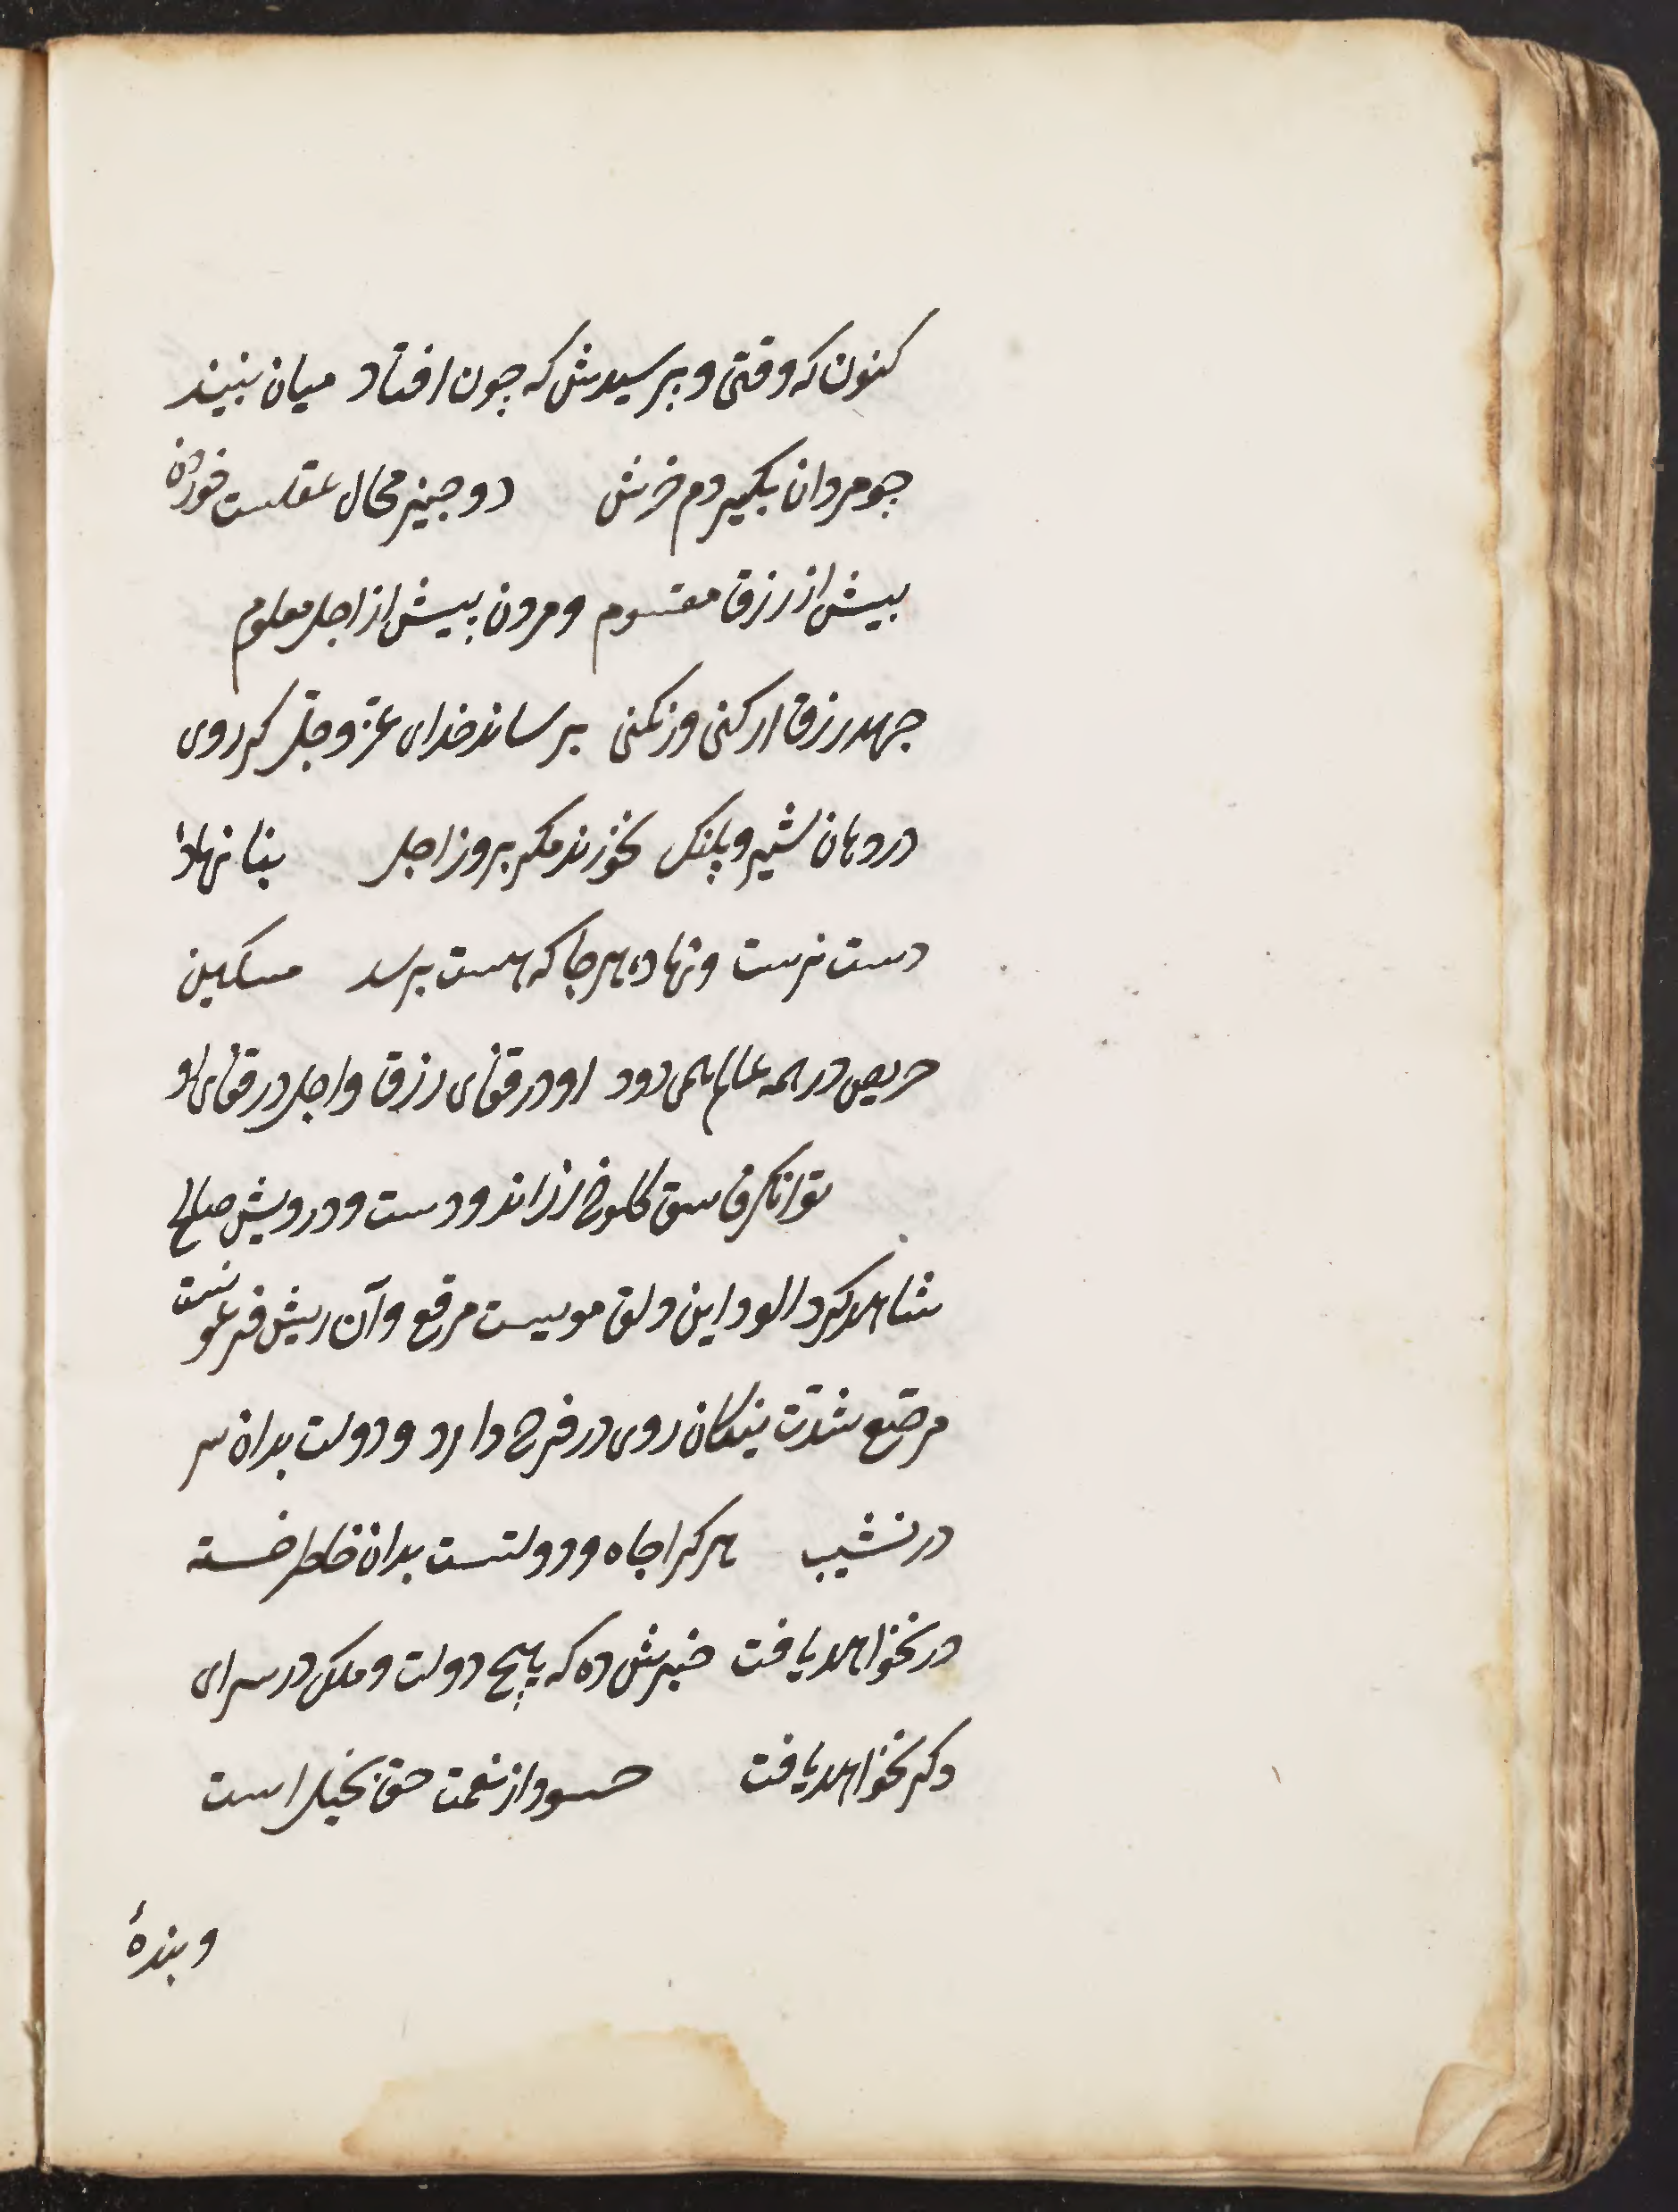 کنون که وقتی و پرسیدش که چون افتاد میان ببیند
چو مردان بکیر دم خرش دو چیز محال عقلست خوردن
بیش از رزق مقسوم و مردن پیش از اجل معلوم
جهد رزق ار کنی وز نکنی برساند خدای عزّ و جلّ کر روی
در دهان شیر و پلنک نخورند مکر بروز اجل بنا نهاده
دست نرست و نهاده هر جا که هست برسد مسکین
حریص در همه عالم همی دود او در قفای رزق و اجل در قفای او
توانکر فاسق کلوخ زر اندودست و درویش صالح
شاهد کرد الود این دلق موسیست مرقع و آن ریش فرعونست
مرصّع شدّت نیکان روی در فرح دارد و دولت بدان سر
در نشیب هر کرا جاه و دولتست بدان خاطر خسته
در نخواهد یافت خبرش ده که هیچ دولت و ملک در سرای
دکر نخواهد یافت حسود از نعمت حق بخیل است
و بندهٔ